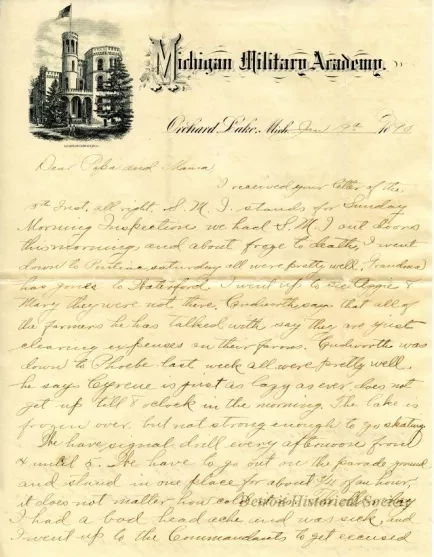 Michigan Military Academy.
Orchard Lake, Mich Jan 19th 1890
Dear Papa and Mama
I received your letter of the
8th Inst. all right. S. M. I. stands for Sunday
Morning Inspection we had S. M. I out doors
this morning and about froze to death, I went
down to Pontiac saturday all were pretty well. Grandma
has gone to Waterford I went up to see Aggie &
Mary they were not there. says that all of
the farmers he has talked with say they are just
clearing expenses on their farms. was
down to Phoebe last week all were pretty well.
he says Cyrene is just as lazy as ever does not
get up till 8 oclock in the morning. The lake is
frozen over but not strong enough to go skating
We have signal drill every afternoon from
4 until 5. We have to go out on the parade ground
and stand in one place for about 3/4 of an hour,
it does not matter how cold
Benton Historical Society
I had a bad head ache and was sick, and
I went up to the Commandants to get excused